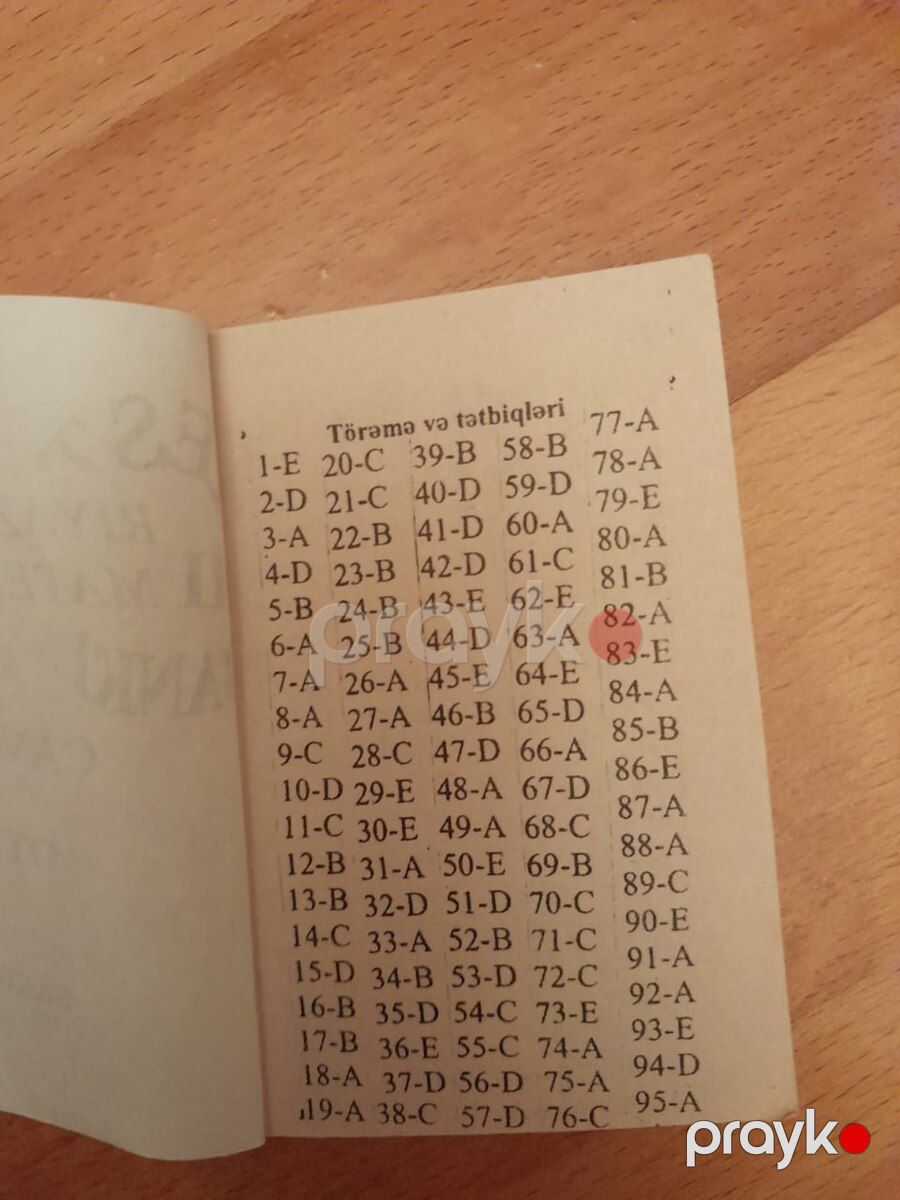 Törəmə və tətbiqləri
1-E 20-C 39-B 58-B 77-A
2-D 21-C 40-D 59-D 78-A
3-A 22-B 41-D 60-A 79-E
4-D 23-B 42-D 61-C 80-A
5-B 24-B 43-E 62-E 81-B
6-A 25-B 44-D 63-A 82-A
7-A 26-A 45-E 64-E 83-E
8-A 27-A 46-B 65-D 84-A
9-C 28-C 47-D 66-A 85-B
10-D 29-E 48-A 67-D 86-E
11-C 30-E 49-A 68-C 87-A
12-B 31-A 50-E 69-B 88-A
13-B 32-D 51-D 70-C 89-C
14-C 33-A 52-B 71-C 90-E
15-D 34-B 53-D 72-C 91-A
16-B 35-D 54-C 73-E 92-A
17-B 36-E 55-C 74-A 93-E
18-A 37-D 56-D 75-A 94-D
19-A 38-C 57-D 76-C 95-A
prayko
prayko